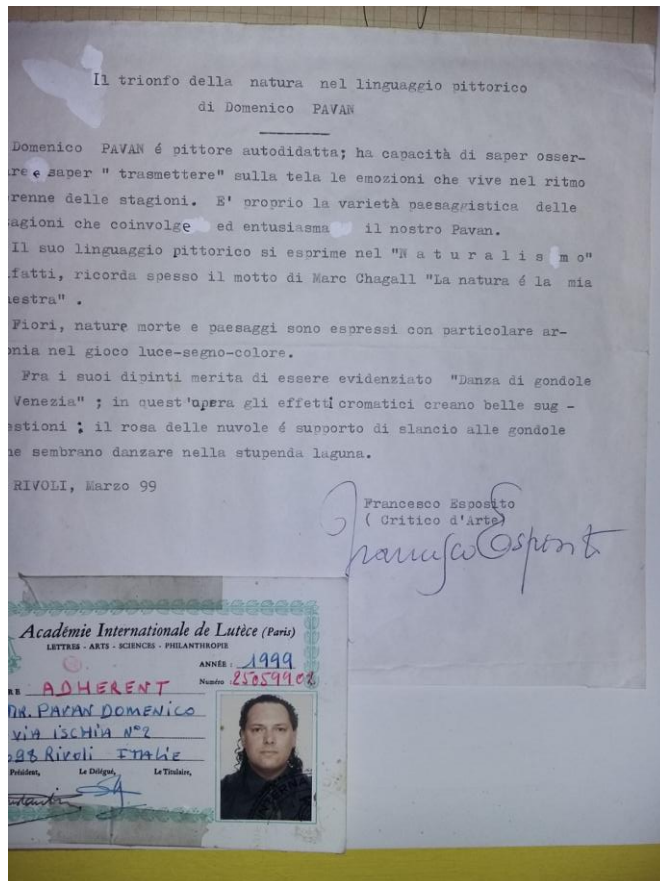 Il trionfo della natura nel linguaggio pittorico
di Domenico PAVAN
Domenico PAVAN é pittore autodidatta; ha capacità di saper osser-
re e saper " trasmettere" sulla tela le emozioni che vive nel ritmo
renne delle stagioni. E' proprio la varietà paesaggistica delle
agioni che coinvolge ed entusiasma il nostro Pavan.
Il suo linguaggio pittorico si esprime nel "N a t u r a l i s m o"
fatti, ricorda spesso il motto di Marc Chagall "La natura é la mia
estra" .
Fiori, nature morte e paesaggi sono espressi con particolare ar-
onia nel gioco luce-segno-colore.
Fra i suoi dipinti merita di essere evidenziato "Danza di gondole
Venezia" ; in quest'opera gli effetti cromatici creano belle sug -
estioni ; il rosa delle nuvole é supporto di slancio alle gondole
e sembrano danzare nella stupenda laguna.
RIVOLI, Marzo 99
Francesco Esposito
( Critico d'Arte)
Francesco Esposito
Académie Internationale de Lutèce (Paris)
LETTRES - ARTS - SCIENCES - PHILANTHROPIE
ANNÉE : 1999
Numéro 25059902
RE ADHERENT
MR. PAVAN DOMENICO
VIA ISCHIA N°2
098 Rivoli ITALIE
Président, Le Délégué, Le Titulaire,